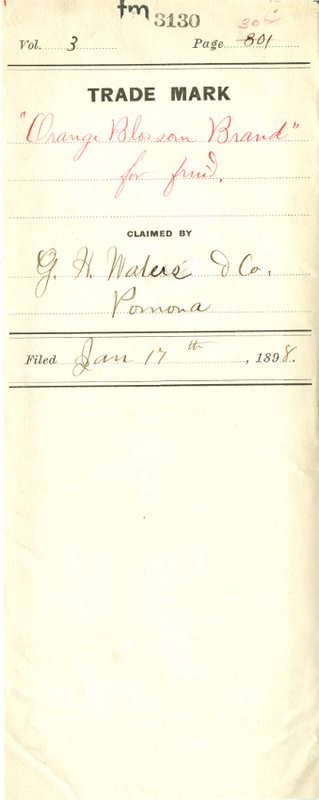 tm 3130
302
Vol. 3 Page 801
TRADE MARK
"Orange Blossom Brand"
for fruit.
CLAIMED BY
G. H. Waters & Co.
Pomona
Filed Jan 17th, 1898.